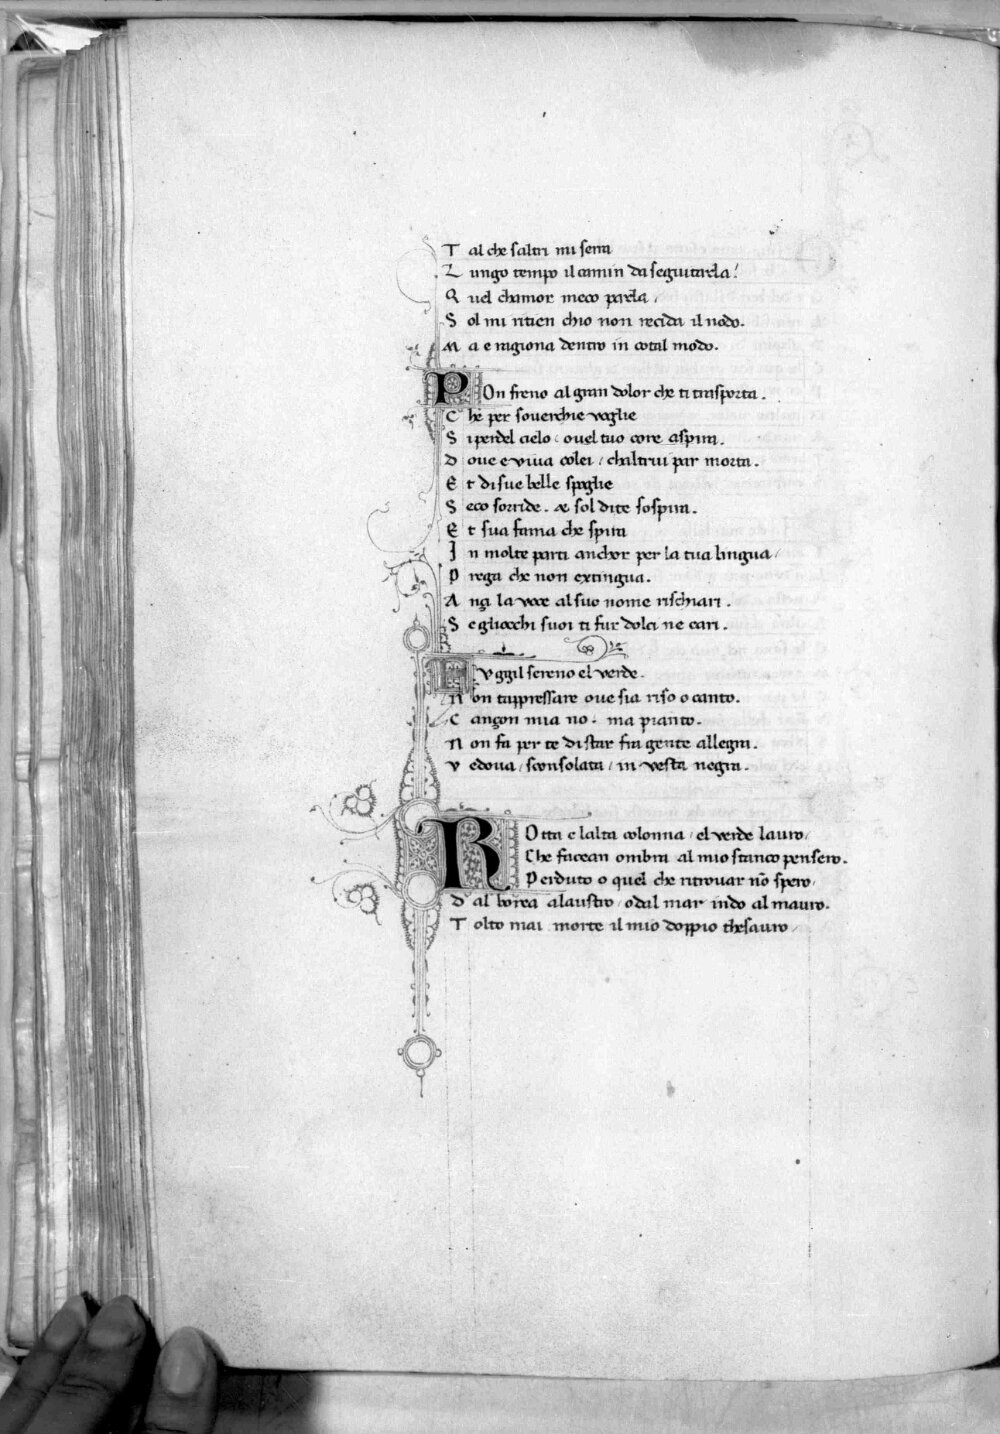 T al che saltri mi serra
L ungo tempo il camin da seguitarla!
Q uel chamor meco parla /
S ol mi ritien chio non recida il nodo.
M a e ragiona dentro in cotal modo.
POn freno al gran dolor che ti trasporta.
C he per souerchie voglie
S i perdel cielo / ouel tuo core aspira.
D oue e viua colei / chaltrui par morta.
E t di sue belle spoglie
S eco sorride. & sol di te sospira.
E t sua fama che spira
I n molte parti anchor per la tua lingua /
P rega che non extingua.
A nzi la voce al suo nome rischiari.
S e gliocchi suoi ti fur dolci ne cari.
FVggil sereno el verde.
N on tappressare oue sia riso o canto.
C anzon mia no. ma pianto.
N on fa per te di star fra gente allegra.
V edoua / sconsolata / in vesta negra.
ROtta e lalta colonna / el verde lauro /
Che facean ombra al mio stanco pensero.
Perduto o quel che ritrouar nõ spero /
D al borea alaustro / o dal mar indo al mauro.
T olto mai morte il mio doppio thesauro /